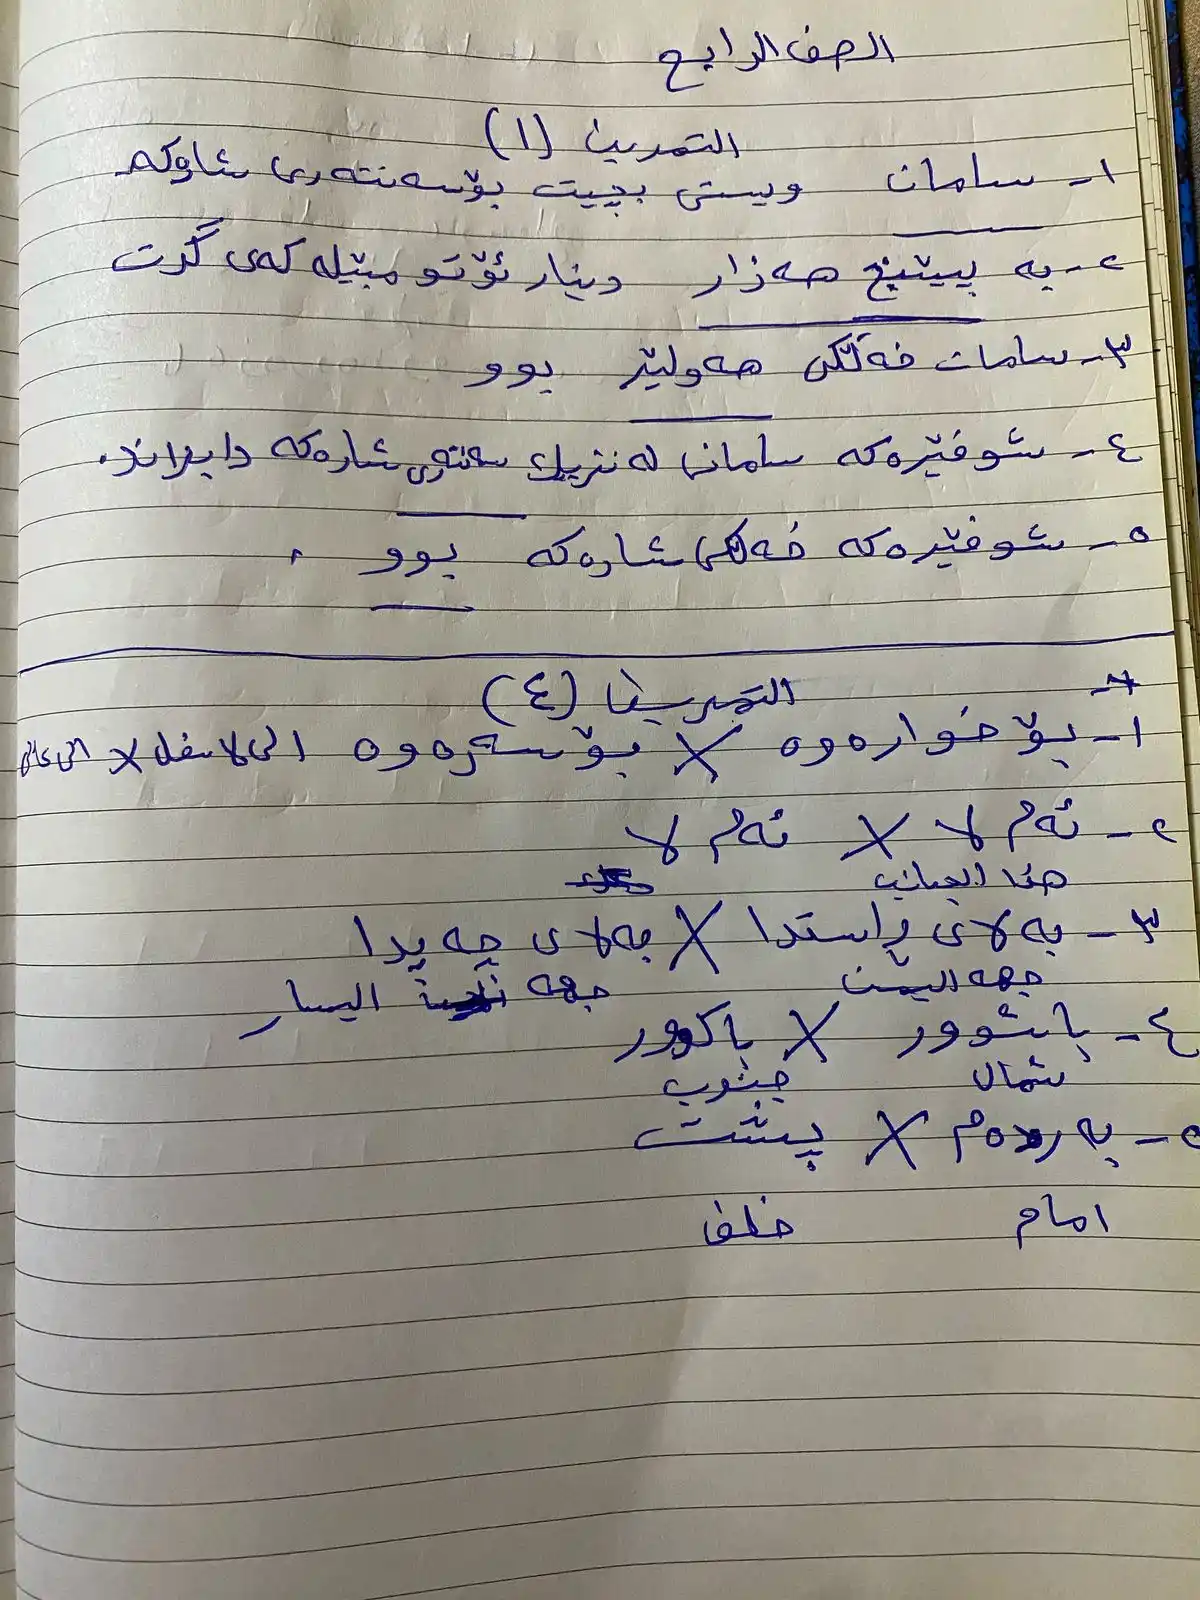 الصف الرابع
التمرين (١)
١- سامان ويستى بچيت بۆ سەنتەرى شاوكە
٢- بە پێنج هەزار دينار ئۆتومبێلەكەى گرت
٣- سامان خەڵكى هەولێر بوو
٤- شوفێرەكە سامانى لە نزيك سەنتەرى شارەكە دابەزاند.
٥- شوفێرەكە خەڵكى شارەكە بوو .
التمرين (٤)
١- بۆ خوارەوە X بۆ سەرەوە الى الاسفل X الى عالي
٢- ئەم لا X ئەم لا
هذا الجانب
٣- بەلاى ڕاستدا X بەلاى چەپدا
جهه اليمين جهه اليسار
٤- باشوور X باكوور
شمال جنوب
٥- بەردەم X پشت
امام خلف